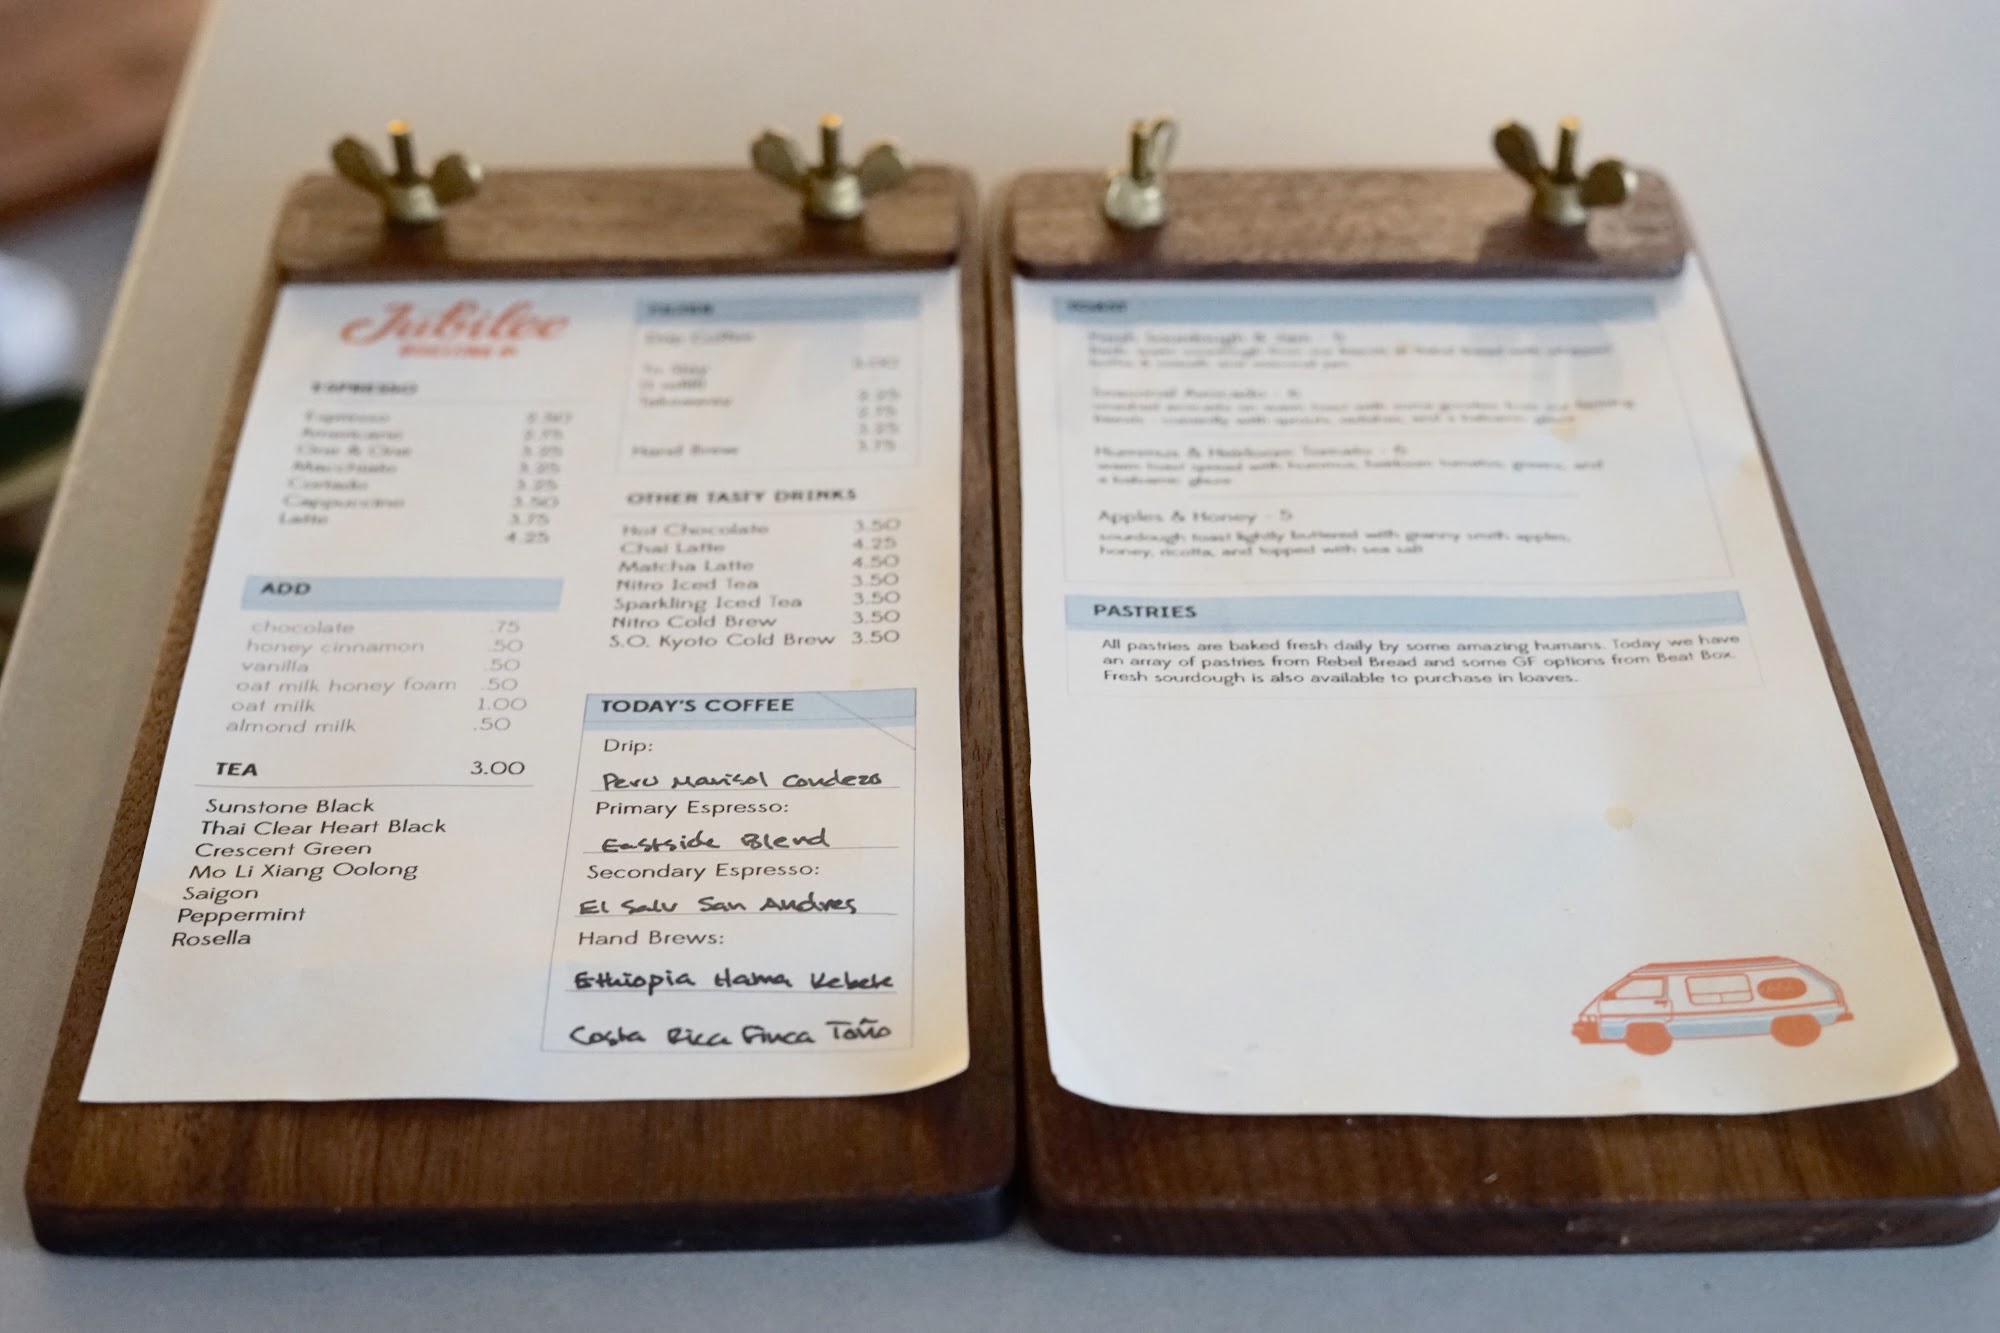 Jubilee
ROASTING CO
ESPRESSO
Espresso 2.50
Americano 2.75
One & One 3.25
Macchiato 3.25
Cortado 3.25
Cappuccino 3.50
Latte 3.75
4.25
ADD
chocolate .75
honey cinnamon .50
vanilla .50
oat milk honey foam .50
oat milk 1.00
almond milk .50
TEA 3.00
Sunstone Black
Thai Clear Heart Black
Crescent Green
Mo Li Xiang Oolong
Saigon
Peppermint
Rosella
Drip Coffee
To Stay 3.00
Takeaway 2.25
2.75
3.25
Hand Brew 3.75
OTHER TASTY DRINKS
Hot Chocolate 3.50
Chai Latte 4.25
Matcha Latte 4.50
Nitro Iced Tea 3.50
Sparkling Iced Tea 3.50
Nitro Cold Brew 3.50
S.O. Kyoto Cold Brew 3.50
TODAY'S COFFEE
Drip:
Peru Marisol Condezo
Primary Espresso:
Eastside Blend
Secondary Espresso:
El Salv San Andres
Hand Brews:
Ethiopia Hama Kebele
Costa Rica Finca Toño
TOAST
Fresh Sourdough & Jam - 5
Seasonal Avocado - 8
Hummus & Heirloom Tomato - 6
warm toast spread with hummus, heirloom tomatoes, greens, and
a balsamic glaze
Apples & Honey - 5
sourdough toast lightly buttered with granny smith apples,
honey, ricotta, and topped with sea salt
PASTRIES
All pastries are baked fresh daily by some amazing humans. Today we have
an array of pastries from Rebel Bread and some GF options from Beat Box.
Fresh sourdough is also available to purchase in loaves.